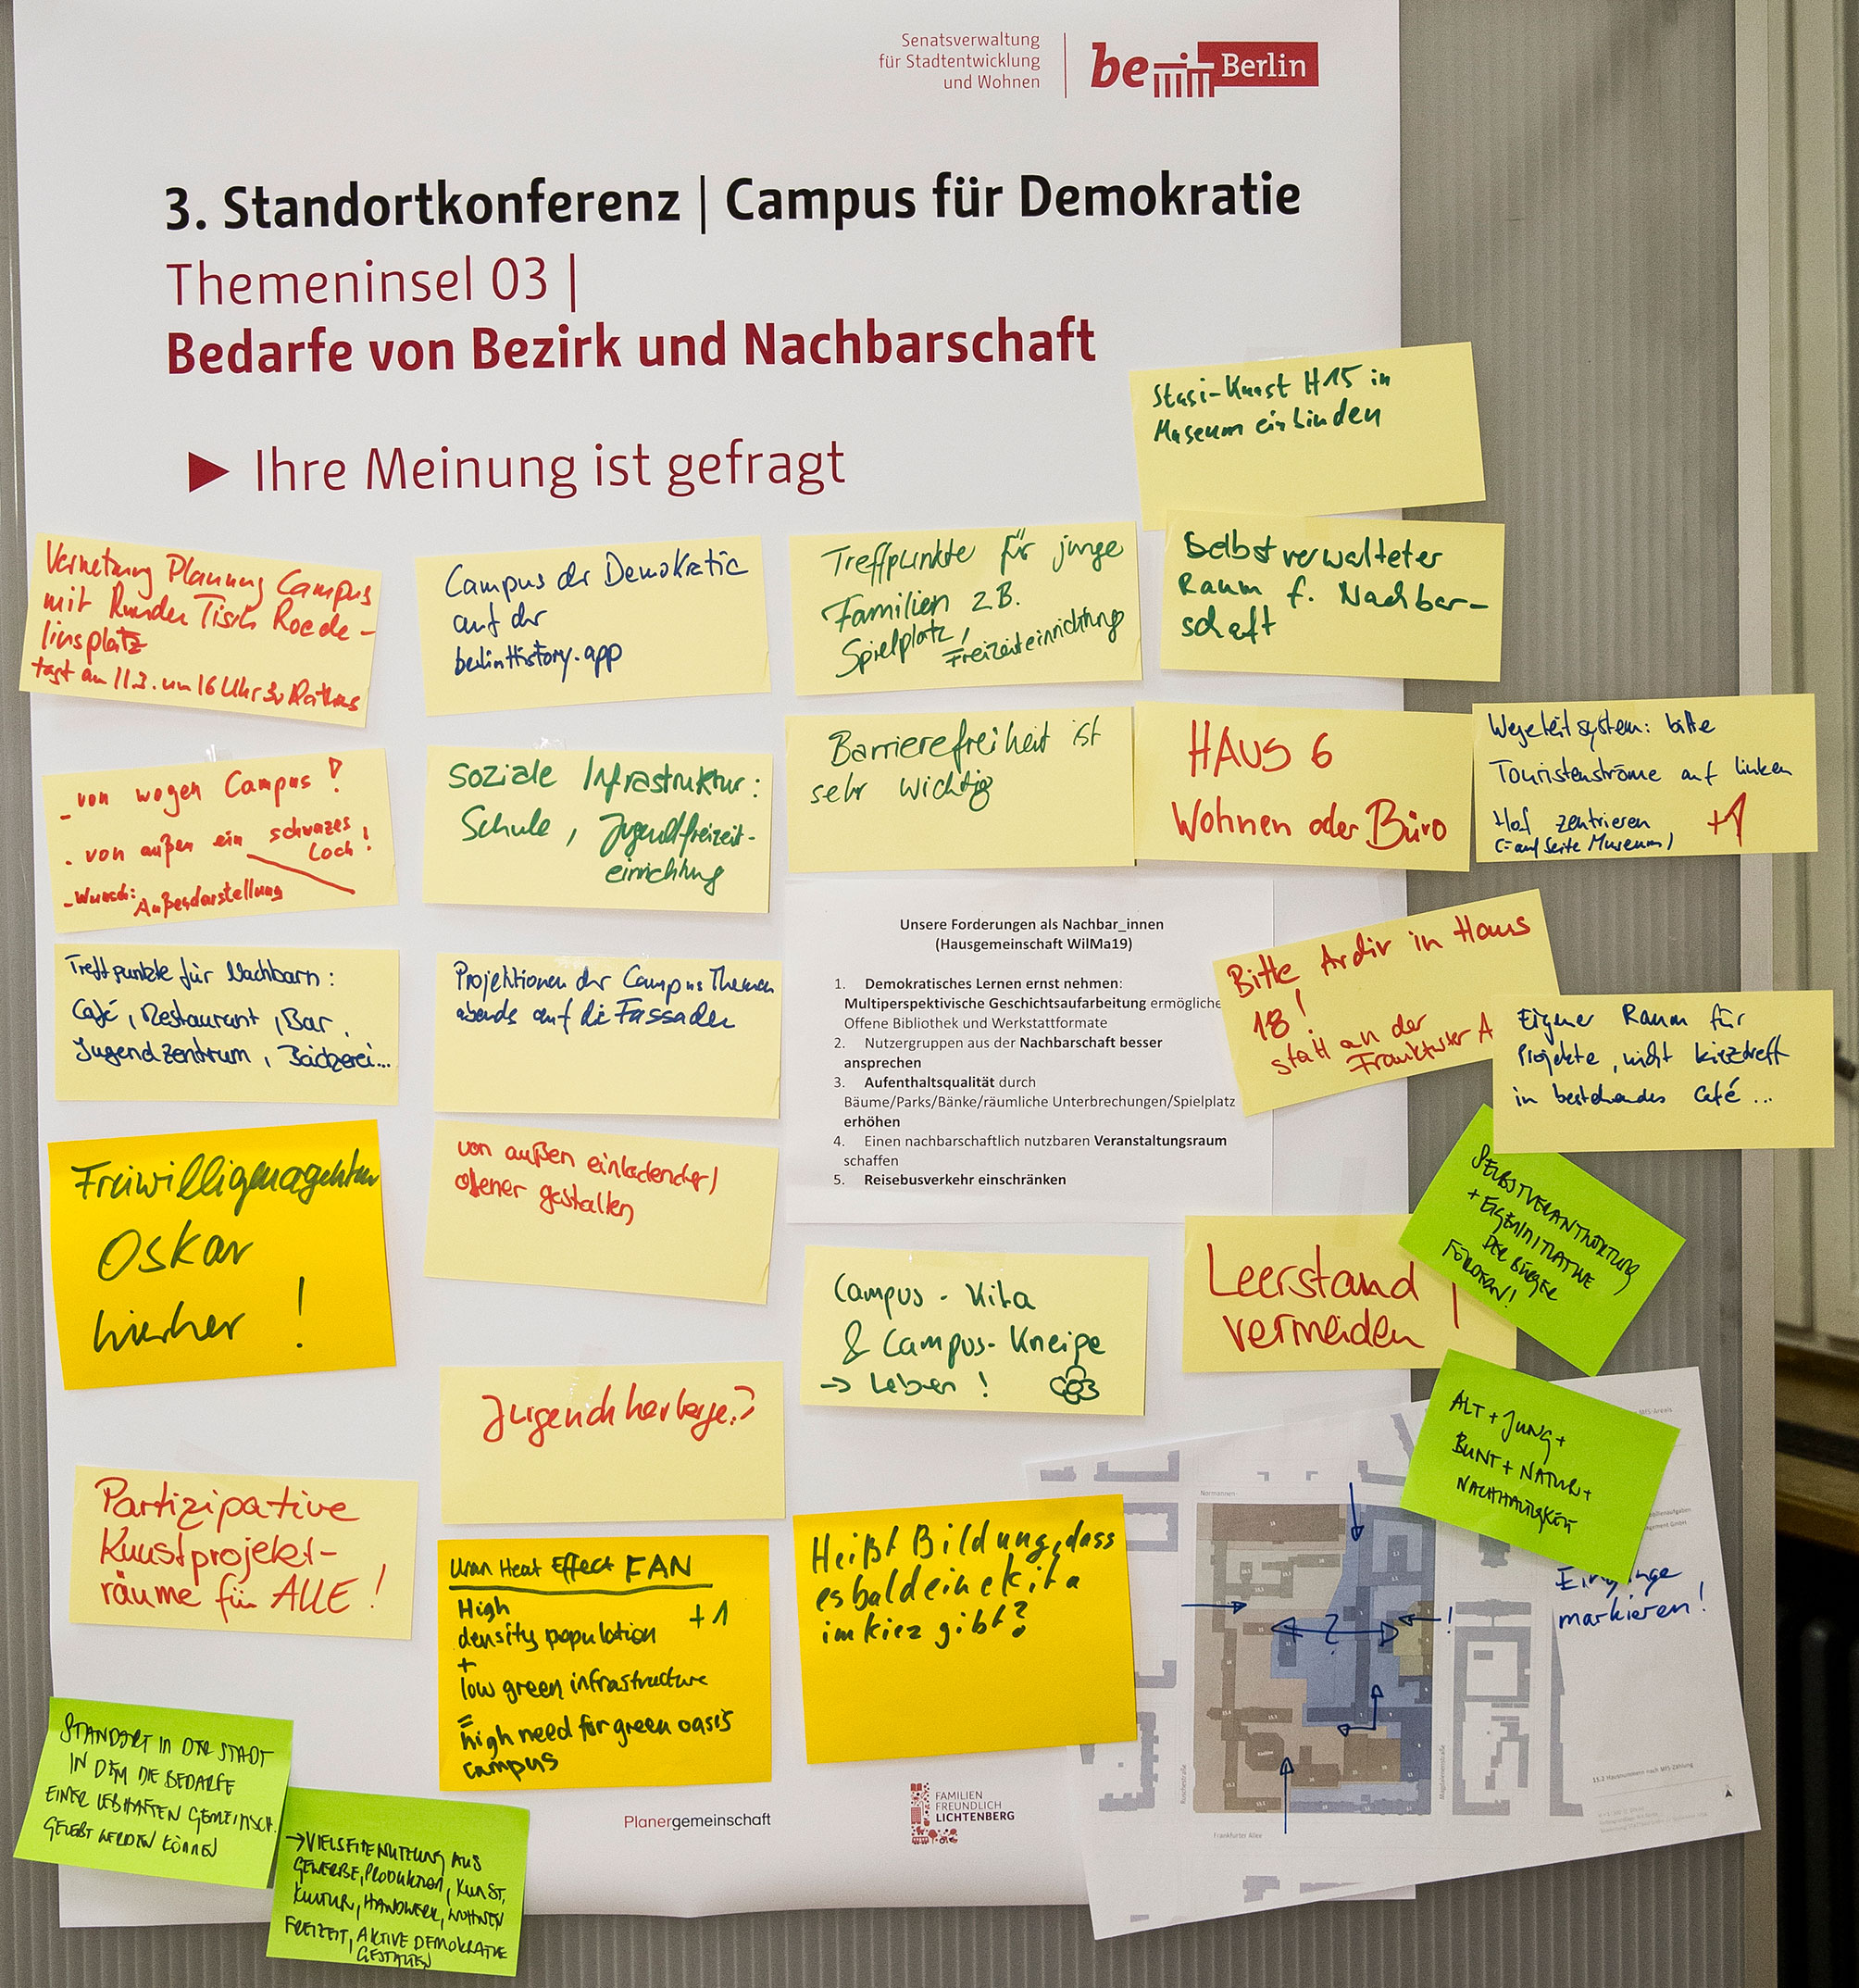 Senatsverwaltung
für Stadtentwicklung
und Wohnen
be Berlin
3. Standortkonferenz | Campus für Demokratie
Themeninsel 03 |
Bedarfe von Bezirk und Nachbarschaft
► Ihre Meinung ist gefragt
Stasi-Kunst H15 in
Museum einbinden
Vernetzung Planung Campus
mit Runder Tisch Roede-
liusplatz
tagt am 11.3. um 16 Uhr Rathaus
Campus der Demokratie
auf der
berlinHistory.app
Treffpunkte für junge
Familien z.B.
Spielplatz, Freizeiteinrichtung
Selbstverwalteter
Raum f. Nachbar-
schaft
- von wegen Campus!
- von außen ein schwarzes
Loch!
- Wunsch: Außendarstellung
Soziale Infrastruktur:
Schule, Jugendfreizeit-
einrichtung
Barrierefreiheit ist
sehr wichtig
HAUS 6
Wohnen oder Büro
Wegeleitsystem: bitte
Touristenströme auf linken
Hof zentrieren
(= auf Seite Museum)
+1
Treffpunkte für Nachbarn:
Café, Restaurant, Bar,
Jugendzentrum, Bäckerei...
Projektionen der Campus Themen
abends auf die Fassaden
Unsere Forderungen als Nachbar_innen
(Hausgemeinschaft WilMa19)
1. Demokratisches Lernen ernst nehmen:
Multiperspektivische Geschichtsaufarbeitung ermögliche
Offene Bibliothek und Werkstattformate
2. Nutzergruppen aus der Nachbarschaft besser
ansprechen
3. Aufenthaltsqualität durch
Bäume/Parks/Bänke/räumliche Unterbrechungen/Spielplatz
erhöhen
4. Einen nachbarschaftlich nutzbaren Veranstaltungsraum
schaffen
5. Reisebusverkehr einschränken
Bitte Archiv in Haus
18!
statt an der
Frankfurter A
Eigener Raum für
Projekte, nicht Kieztreff
in bestehendes Café...
Freiwilligenagentur
Oskar
hierher!
von außen einladender/
offener gestalten
Campus-Kita
& Campus-Kneipe
→ Leben!
Leerstand
vermeiden!
SELBSTVERANTWORTUNG
+ EIGENINITIATIVE
DER BÜRGER
FÖRDERN!
Jugendherberge?
ALT + JUNG +
BUNT + NATUR +
NACHHALTIGKEIT
Partizipative
Kunstprojekt-
räume für ALLE!
Heat Effect FAN
High
density population
+1
+
low green infrastructure
=
high need for green oasis
campus
Heißt Bildung, dass
es bald eine kita
im kiez gibt?
Normannen-
Eingänge
markieren!
!
Ruschestraße
Magdalenenstraße
Frankfurter Allee
11.2 Hausnummern nach MfS-Zählung
STANDORT IN DER STADT
IN DEM DIE BEDARFE
EINER LEBHAFTEN GEMEINSCH.
GELEBT WERDEN KÖNNEN
→ VIELSEITENUTZUNG AUS
GEWERBE, PRODUKTION, KUNST,
KULTUR, HANDWERK, WOHNEN
FREIZEIT, AKTIVE DEMOKRATIE
GESTALTEN
Planergemeinschaft
FAMILIEN
FREUNDLICH
LICHTENBERG